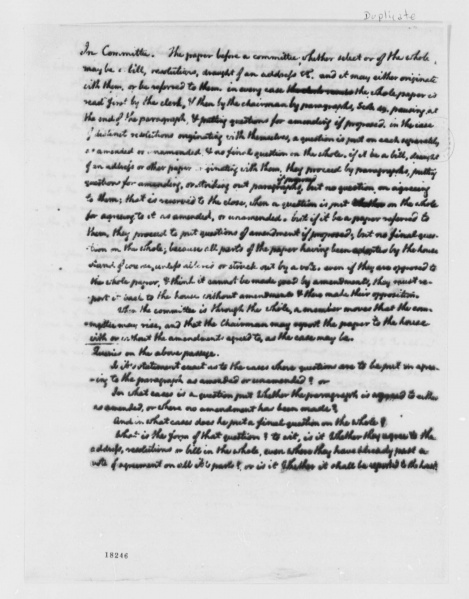 Duplicate
In Committee. The paper before a committee, whether select or of the whole,
may be a bill, resolutions, draught of an address &c. and it may either originate
with them, or be referred to them. in every case the whole paper is
read first by the clerk, & then by the chairman by paragraphs, pausing at
the end of the paragraph, & putting questions for amending if proposed. in the case
of distinct resolutions originating with themselves, a question is put on each separately,
as amended or unamended & no final question on the whole. if it be a bill, draught
of an address or other paper originating with them, they proceed by paragraphs, putting
questions for amending, or striking out paragraphs, if proposed, but no question on agreeing
to them; that is reserved to the close, when a question is put on the whole
for agreeing to it as amended, or unamended. but if it be a paper referred to
them, they proceed to put questions of amendment if proposed, but no final ques-
tion on the whole; because all parts of the paper having been adopted by the house
stand of course, unless altered or struck out by a vote. even if they are opposed to
the whole paper, & think it cannot be made good by amendments, they must re-
port it back to the house without amendments & there make their opposition.
When the committee is through the whole, a member moves that the com-
mittee may rise, and that the Chairman may report the paper to the house
with or without the amendments agreed to, as the case may be.
Queries on the above passage.
Is it's statement exact as to the cases where questions are to be put on agree-
-ing to the paragraph as amended or unamended? or
In what cases is a question put Whether the paragraph is agreed to either
as amended, or where no amendment has been made?
And in what cases does he put a final question on the whole?
What is the form of that question? to wit, is it Whether they agree to the
address, resolutions or bill in the whole, even where they have already past a
vote of agreement on all it's parts?, or is it Whether it shall be reported to the house?
18246